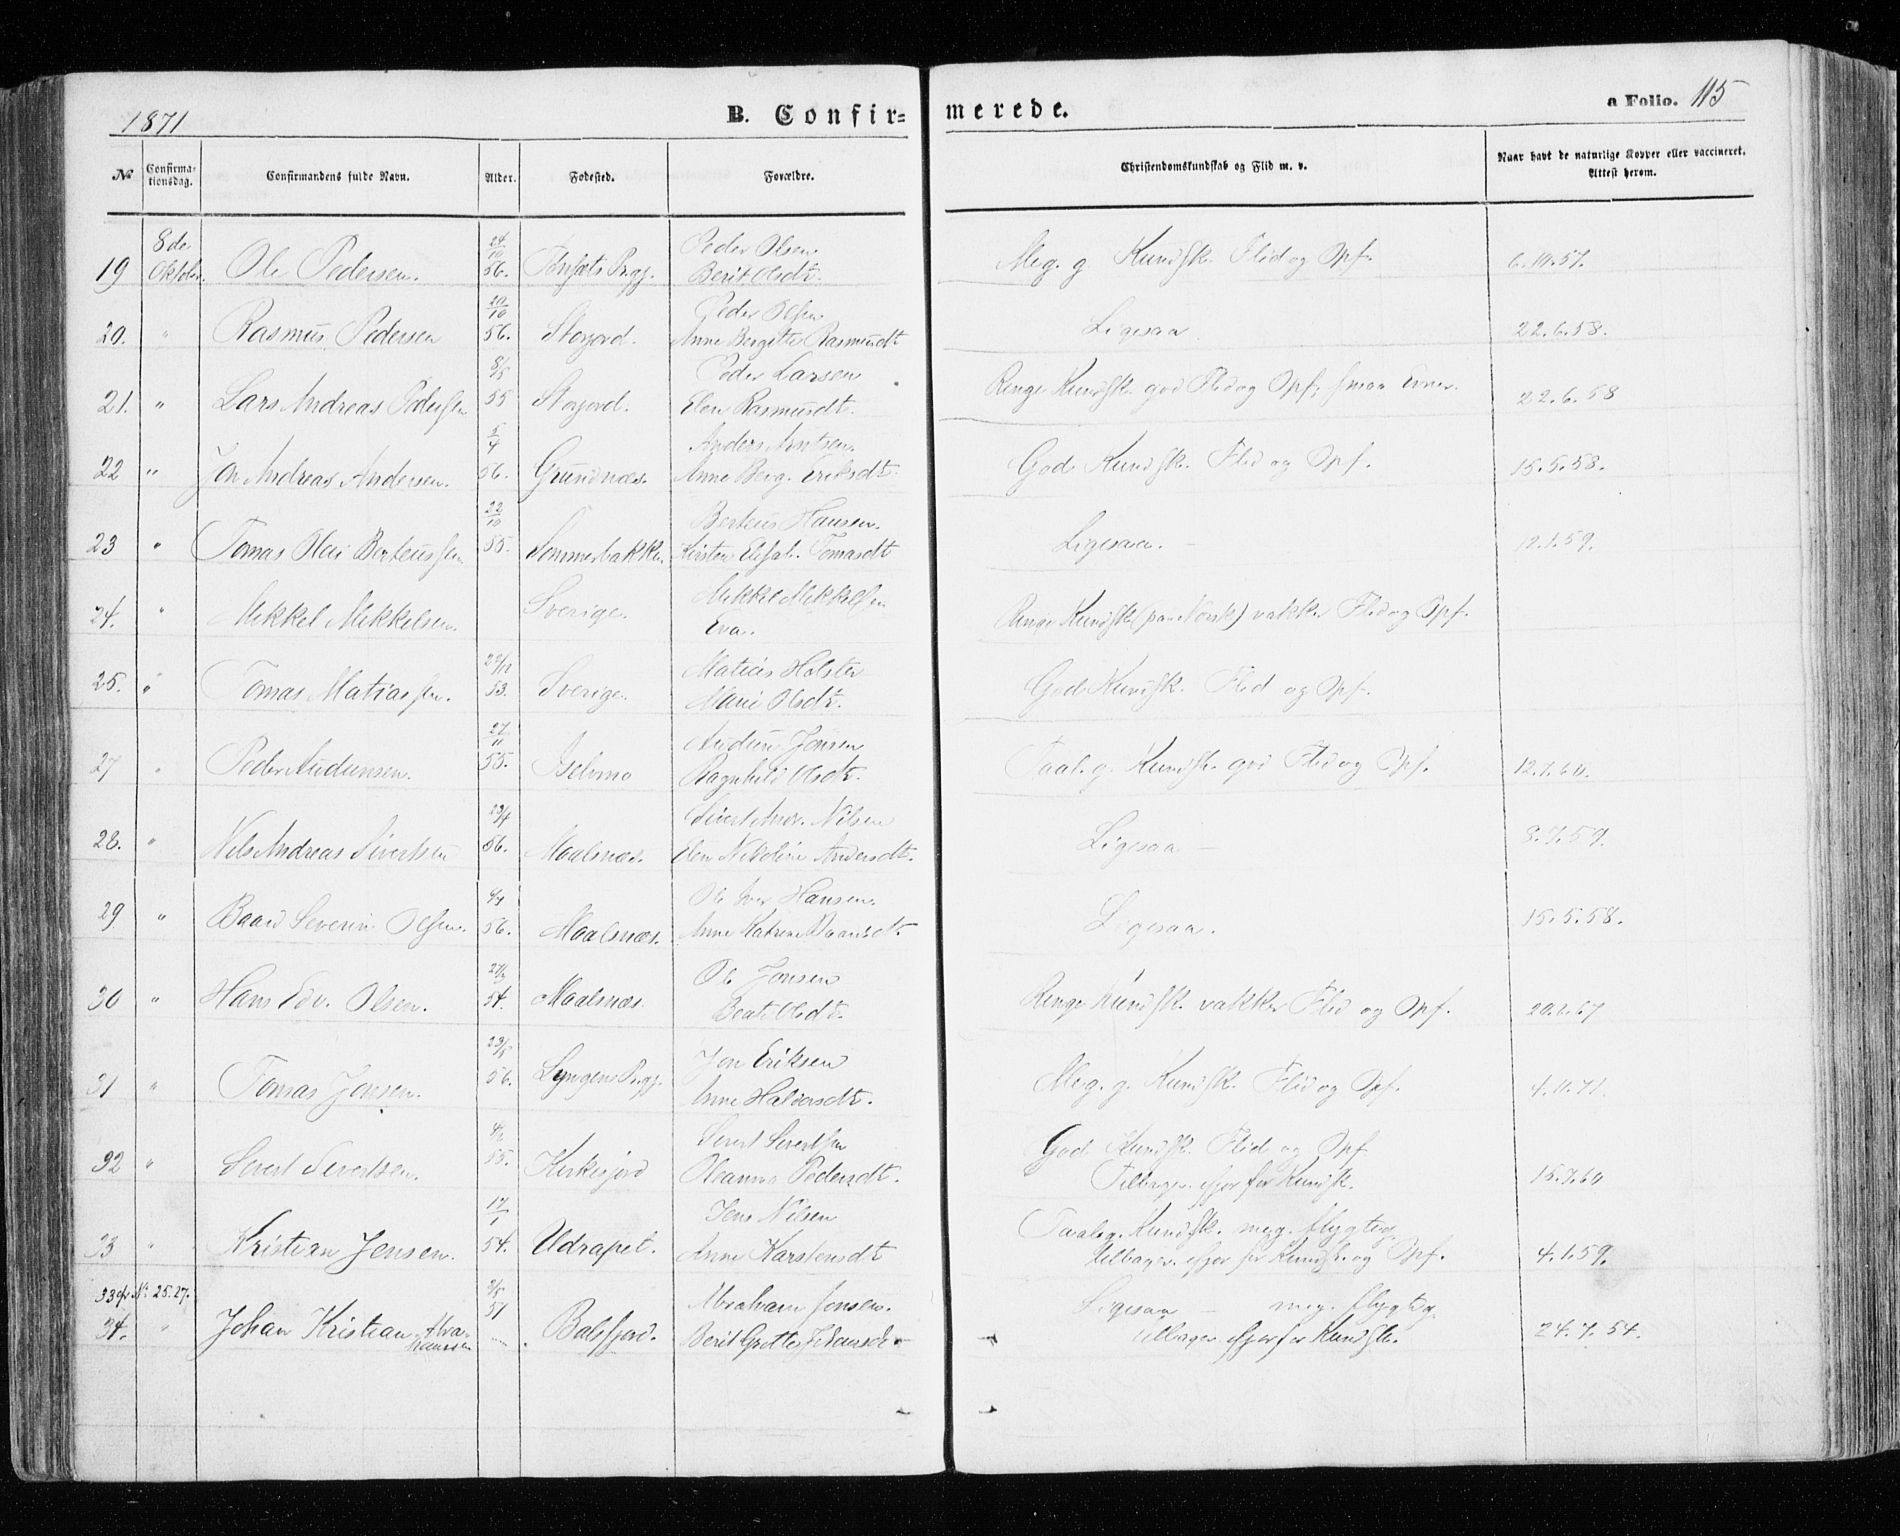 1871
B. Confir=
merede.
a Folio. 115
No
Confirma-
tionsdag.
Confirmandens fulde Navn.
Alder.
Fødested.
Forældre.
Christendomskundskab og Flid m. v.
Naar havt de naturlige Kopper eller vaccineret.
Attest herom.
8de 24/10 Peder Olsen
19 Oktober Ole Pedersen. 56. Berit Olsdt. Meg. g Kundsk. Flid og Opf. 6.10.57.
20/10 Peder Olsen
20. " Rasmus Pedersen 56. Storjord. Anne Bergitte Rasmusdt. Ligesaa 22.6.58.
8/5 Peder Larsen
21. " Lars Andreas Pedersen 55 Storjord. Elen Rasmusdt. Ringe Kundsk. god Flid og Opf. smaa Evner. 22.6.58
Anders Arntsen
22 " Jon Andreas Andersen. 56. Grundnæs. Anne Berg. Eriksdt. God Kundsk. Flid og Opf. 15.5.58.
22/10 Berteus Hansen.
23 " Tomas Olai Berteussen 55. Sommerbakken Kirsten Elisab. Tomasdt Ligesaa. 12.1.59.
Mikkel Mikkelsen
24. " Mikkel Mikkelsen. Sverige. Eva. Ringe Kundsk. (paa Norsk) vakker Flid og Opf.
Matias Holster
25. " Tomas Matiassen. 53. Sverige. Marie Olsdt. God Kundsk. Flid og Opf.
27/11 Audun Jonsen
27 " Peder Audunsen. 55. Iselvmo Ragnhild Olsdt. Taal. g. Kundsk. god Flid og Opf. 12.7.60.
Sivert Andr. Nilsen
28. " Nils Andreas Sivertsen 56. Maalsnæs. Elen Nikoline Andersdt. Ligesaa 8.7.59.
Ole Iver Hansen.
29 " Baard Severin Olsen. 56. Maalsnæs. Anne Katrine Baardsdt. Ligesaa. 15.5.58.
Ole Jonsen
30 " Hans Edv. Olsen. 54. Maalsnæs. Beate Olsdt. Ringe Kundsk. vakker Flid og Opf.
Jon Eriksen
31 " Tomas Jonsen. 56. Lyngens Prgj. Anne Halvorsdt. Meg. g. Kundsk. Flid og Opf. 4.11.71.
Sivert Sivertsen God Kundsk. Flid og Opf.
32 " Sivert Sivertsen. 55. Kirkesjord Oleanna Pedersdt. Tilbagev. ifjor for Kundsk. 15.7.60
17/1 Jens Nilsen Taal. g. Kundsk. meg. flygtig.
33 " Kristian Jensen. 54. Udrapet. Anne Karstensdt tilbagev. ifjor for Kundsk. og Opf. 4.1.59.
33 No 25.27. 51 Abraham Jonsen. Ligesaa – meg. flygtig
34. " Johan Kristian Abra- hamssen Balsfjord. Berit Grethe Johansdt. tilbagev. ifjor for Kundsk. 24.7.54.